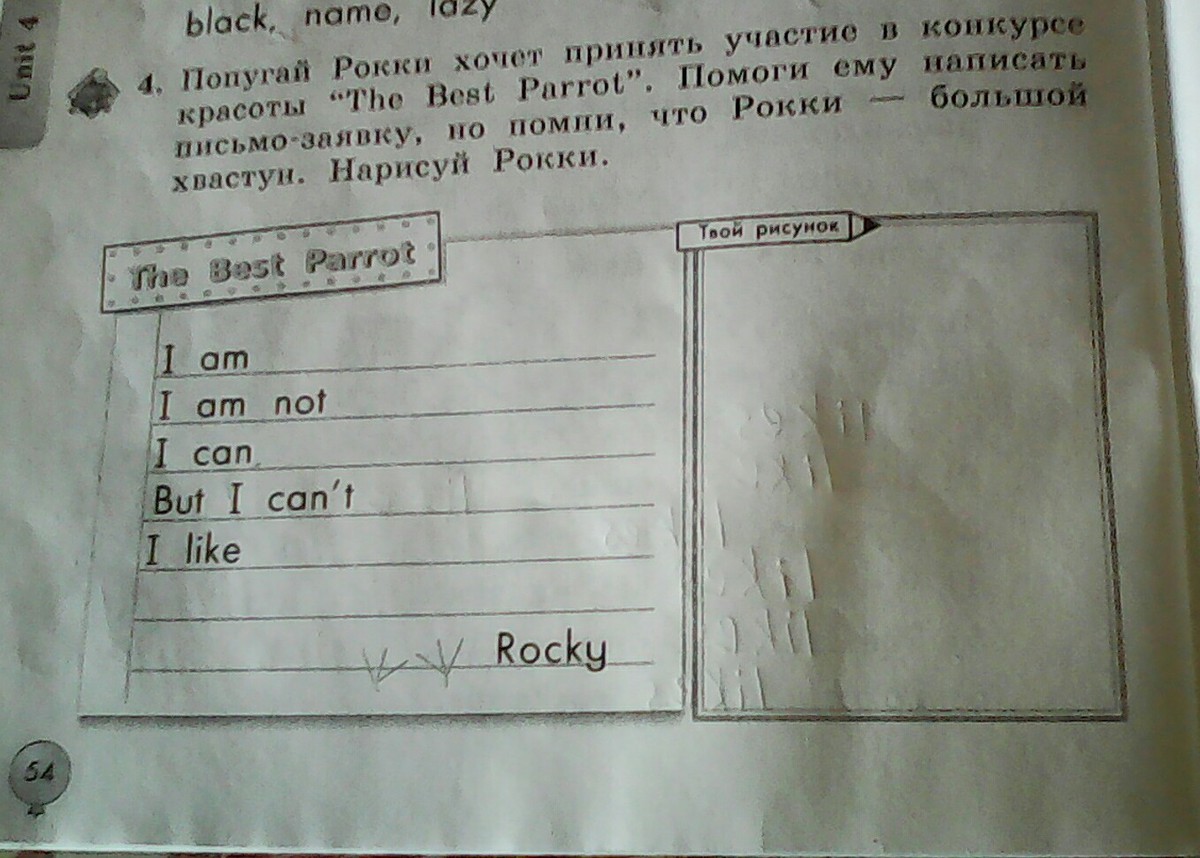 Unit 4
black, name, lazy
4. Попугай Рокки хочет принять участие в конкурсе
красоты “The Best Parrot”. Помоги ему написать
письмо-заявку, но помни, что Рокки — большой
хвастун. Нарисуй Рокки.
The Best Parrot
Твой рисунок
I am
I am not
I can
But I can't
I like
Rocky
54